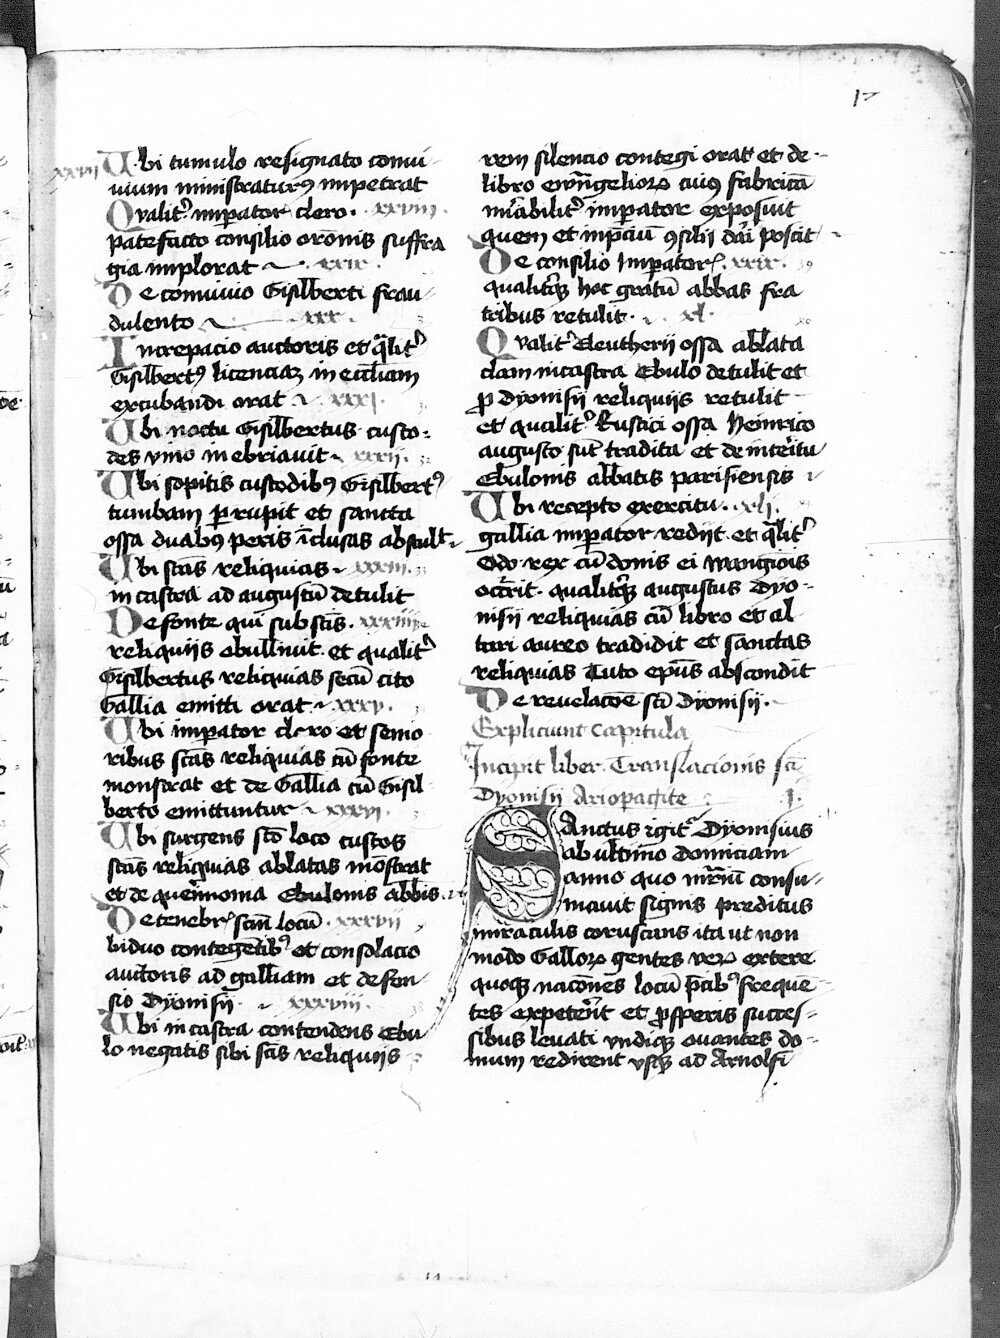 17
xxvii Ubi tumulo resignato conui-
uium ministraturꝰ impetrat
Qualitˀ imꝑator clero. xxviii.
patefacto consilio orōnis suffra
gia implorat xxix.
De conuiuio Gisilberti frau-
dulento xxx.
Increpacio auctoris et qͣlitˀ
Gisilbertꝰ licenciaꝫ in eccl̄iam
excubandi orat xxxi
Ubi noctu Gisilbertus custo-
des vino inebriauit xxxii.
Ubi sopitis custodibꝰ Gisilbertꝰ
tumbam ꝑrupit et sancta
ossa duabꝰ peris īclusas abstulit
Ubi sc̄as reliquias xxxiii.
in castra ad augustū detulit
De fonte qui sub sc̄is. xxxiiii
reliquiis ebulliuit et qualitˀ
Gisilbertus reliquias secū cito
Gallia emitti orat xxxv.
Ubi imꝑator clero et senio
ribus sc̄as reliquias cū fonte
monstrat et de Gallia cū Gisil
berto emittuntur xxxvi.
Ubi surgens sc̄o loco custos
sc̄as reliquias ablatas mōstrat
et de querimonia Ebulonis abbīs
De tenebrˀ sc̄m locū xxxvii
biduo contegētibꝰ et consolacio
auctoris ad galliam et defen-
sio Dyonisii xxxviii.
Ubi in castra contendens Ebu
lo negatis sibi sc̄is reliquiis
rem silencio contegi orat et de
libro ewāngelioꝝ cuiꝰ fabricā
mirabilitˀ imꝑator exposuit
quem et in p̄ciū ꝯsilii dari poscit
De consilio Imꝑatorˀ. xxxix.
qualitˀqꝫ hoc gratū abbas fra
tribus retulit. xl.
Qualitˀ Eleutherii ossa ablata
clam in castra Ebulo detulit et
ꝓ dyonisii reliquiis retulit
et qualitˀ Rustici ossa Heinrico
augusto sūt tradita et de interitu
Ebulonis abbatis parisiensis
Ubi recepto exercitu. xli.
gallia imꝑator rediit et qͣlitˀ
Odo rex cū donis ei wangiōis
occ̄rit. qualitˀqꝫ augustus Dyo-
nisii reliquias cū libro et al-
tari aureo tradidit et sanctas
reliquias Tuto ep̄us abscondit
De reuelacōe sc̄i Dyonisii.
Expliciunt Capitula
Incipit liber Translacionis sc̄i
Dyonisii Ariopagite I.
Sanctus igitˀ Dyonisius
ab ultimo Domiciani
anno quo mr̄iū consu-
mauit signis preditus
miraculis coruscans ita ut non
modo Galloꝝ gentes veꝝ extere
quoqꝫ nacōnes locū p̄cibꝰ frequē-
tes expeterēt et ꝓsperis succes-
sibus leuati vndiqꝫ ouantes do-
mum redirent vsqꝫ ad Arnolfi